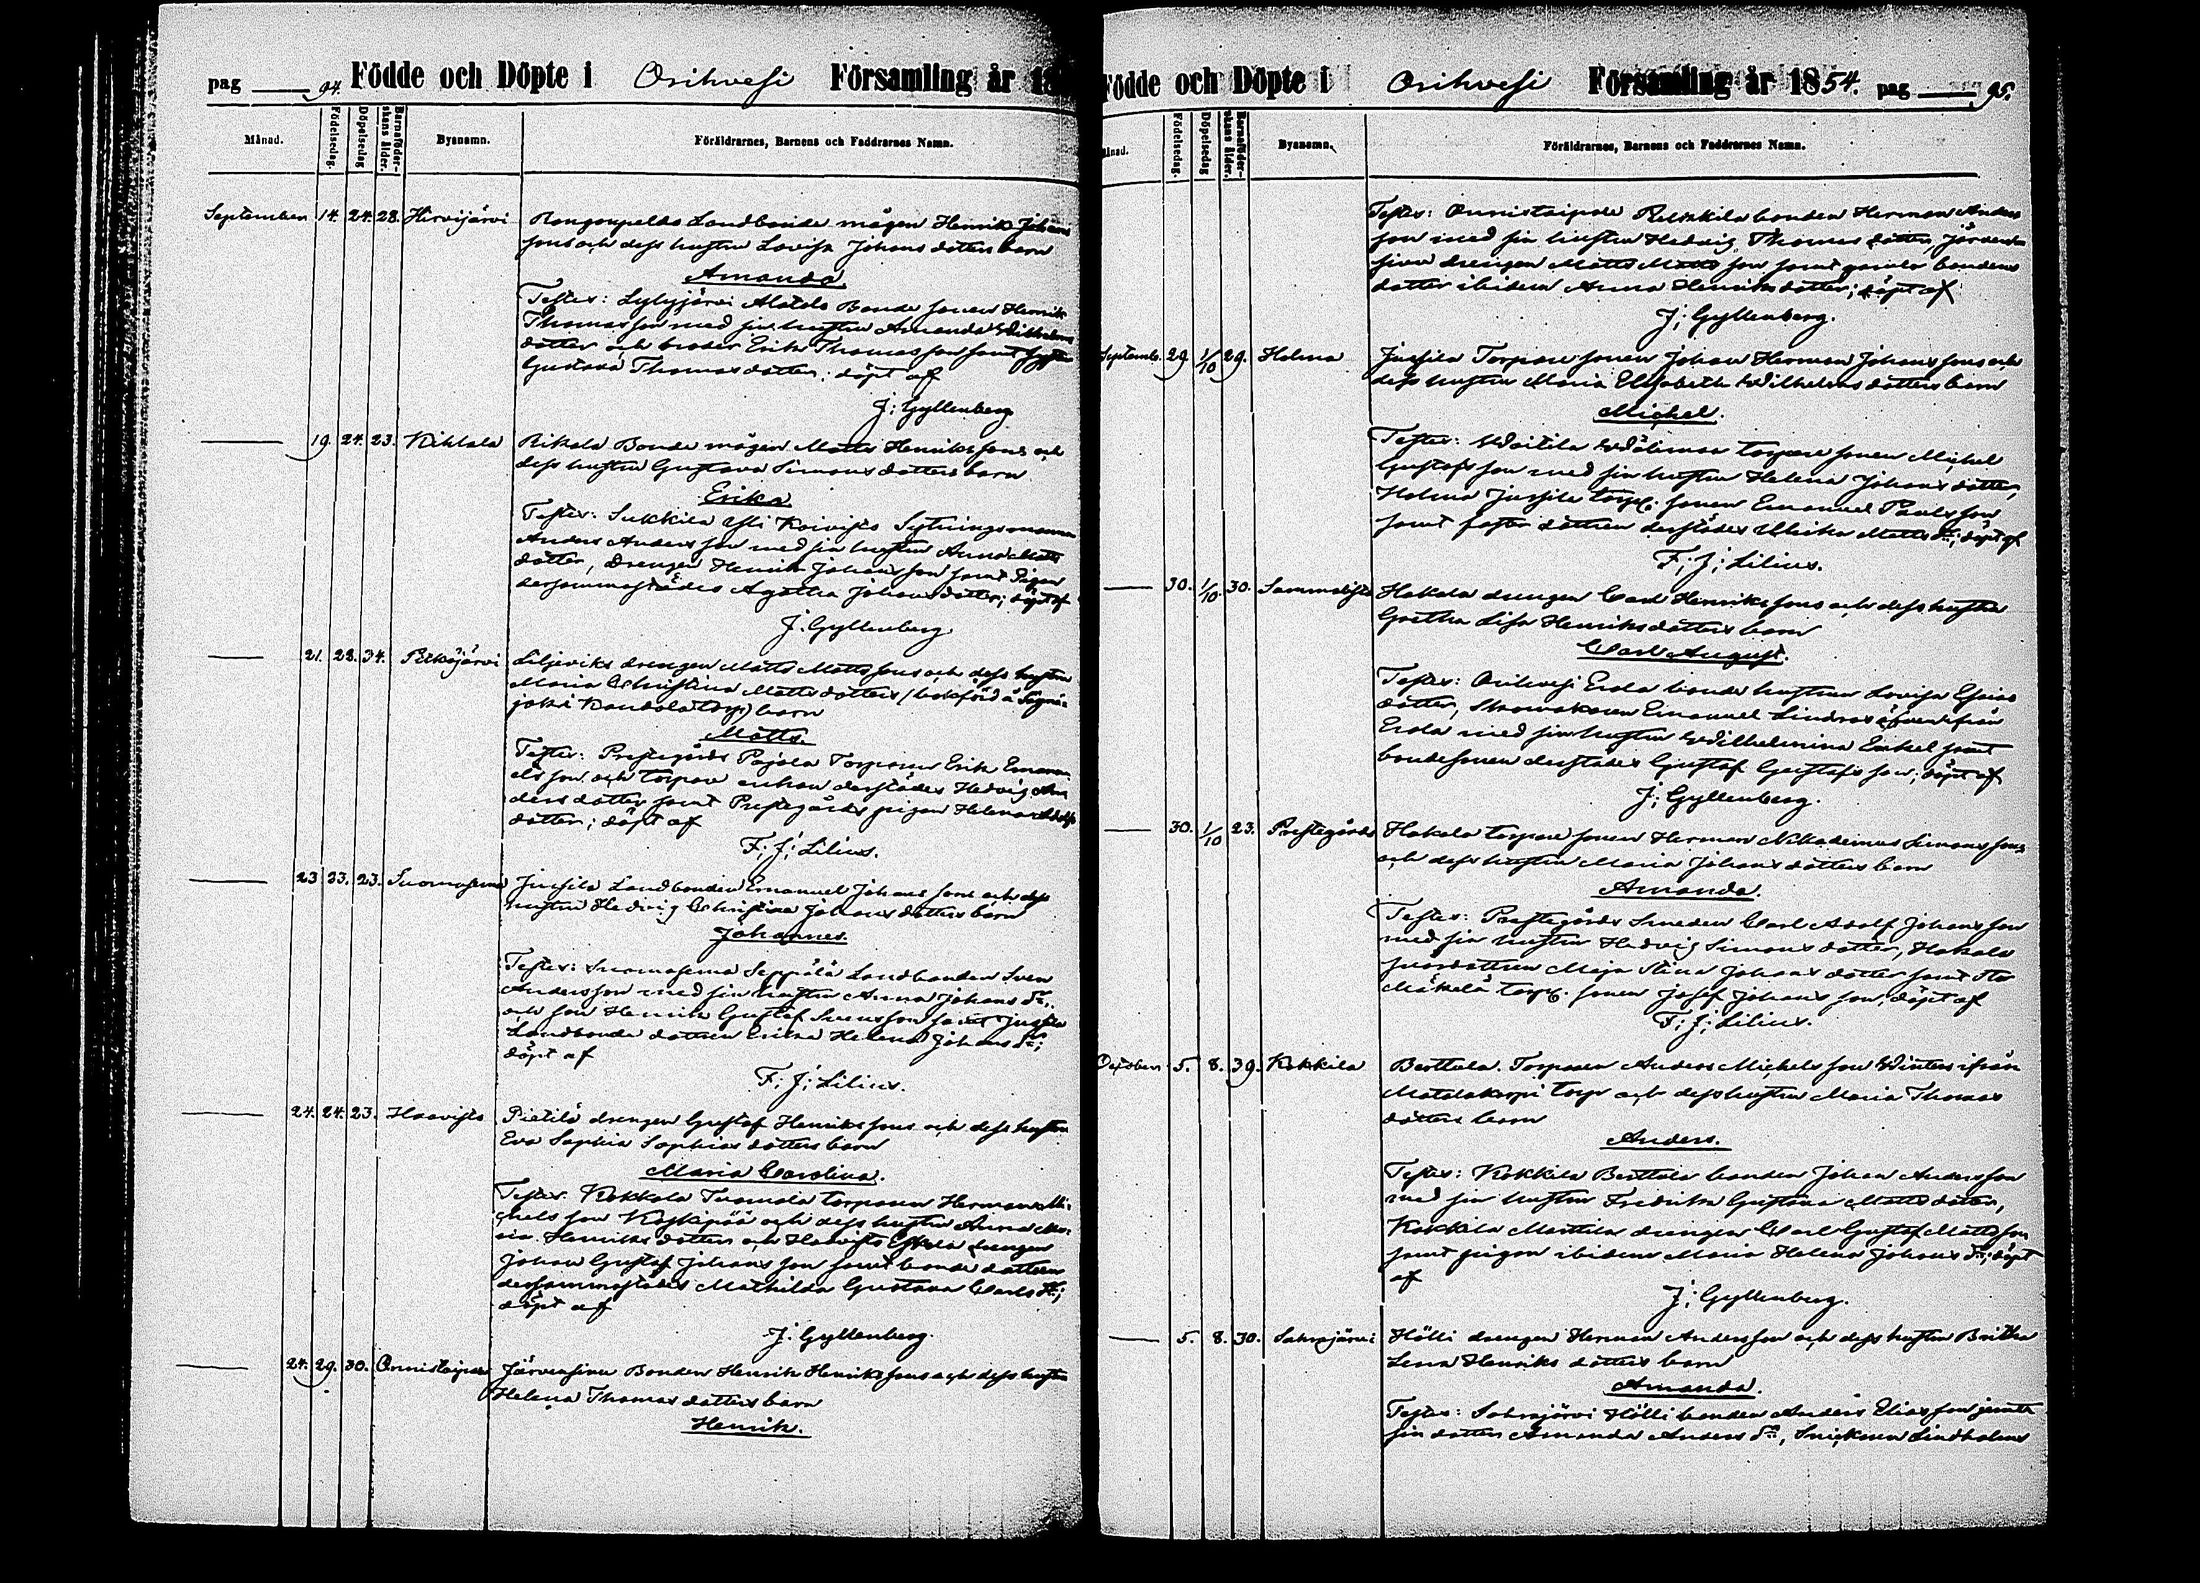 pag 94. Födde och Döpte i Orihvesi Församling år 18
Månad. Födelsedag. Döpelsedag Barnaföder-skans ålder. Byanamn. Föräldrarnes, Barnens och Faddrarnes Namn.
September 14. 24. 28. Hirvijärvi Landbonde mågen Henrik Johans
sons och dess hustru Lovisa Johans dotters barn
Amanda.
Testes: Lylyjärvi Alatalo Bonde sonen Henrik
Thomas son med sin hustru Amanda Wilhelms
dotter och broder Erik Thomas son samt syster
Gustava Thomas dotter; döpt af
J; Gyllenberg
19. 24. 23. Kihlala Rikala Bonde mågen Matts Henriks sons och
dess hustru Gustava Simons dotters barn
Erika.
Testes: Sukkila Koivisto Sytningsmannen
Anders Anders son med sin hustru Anna Matts
dotter, Drengen Henrik Johans son samt Pigan
dersammastädes Agatha Johans dotter; döpt af
J. Gyllenberg.
21. 28. 34. Pitkäjärvi Liljeviks drengen Matts Matts sons och dess hustru
Maria Christina Matts dotters (bokförd å
joki Kandola torp) barn
Matts.
Testes: Prestegårds Pajola Torparen Erik Emanu-
els son och torpare enkan derstädes Hedvig An
ders dotter samt Prestegårds pigan Helena Adolfs
dotter; döpt af
F; J; Lilius.
23 23. 23. Suomasema Jussila Landbonden Emanuel Johans sons och dess
hustru Hedvig Christina Johans dotters barn
Johannes.
Testes: Suomasema Seppälä Landbonden Sven
Andersson med sin hustru Anna Johans dr,
och son Henrik Gustaf Svensson samt Jussila
Landbonde dottren Erika Helena Johans dr;
döpt af
F; J; Lilius.
24. 24. 23. Haavisto Pietilä drengen Gustaf Henriks sons och dess hustru
Eva Sophia Sophias dotters barn
Maria Carolina.
Testes: Kokkola Tuomola torparen Herman Mi-
chels son Koskipää och dess hustru Anna Ma-
ria Henriks dotter och Haavisto Eskola drengen
Johan Gustaf Johans son samt bonde dottren
dersammastädes Mathilda Gustava Carls dr;
döpt af
J. Gyllenberg.
24. 29. 30. Onnistaipale Järvensivu Bonden Henrik Henriks sons och dess hustru
Helena Thomas dotters barn
Henrik.
Födde och Döpte i Orihvesi Församling år 1854. pag 95.
Månad. Födelsedag. Döpelsedag Barnaföder-skans ålder. Byanamn. Föräldrarnes, Barnens och Faddrarnes Namn.
Testes: Onnistaipale bonden Herman Anders
son med sin hustru Hedvig Thomas dotter, Järven
sivu drengen Matts Matts son samt bondens
dotter ibidem Anna Henriks dotter; döpt af
J; Gyllenberg.
Septemb. 29. 1/10 29. Holma Jussila Torpare sonen Johan Herman Johans sons och
dess hustru Maria Elisabeth Wilhelms dotters barn
Michel.
Testes: Wälimaa torpare sonen Michel
Gustafs son med sin hustru Helena Johans dotter,
Holma Jussila torp. sonen Emanuel Pauls son
samt foster dottren derstädes Ulrika Matts dr; döpt af
F; J; Lilius.
30. 1/10. 30. Sammalisto Hakala drengen Carl Henriks sons och dess hustru
Gretha Lisa Henriks dotters barn
Carl August.
Testes: Orihvesi Erola bonde hustrun Lovisa Esaias
dotter, Skomakaren Emanuel Lindroos äfven ifrån
Erola med sin hustru Wilhelmina Enkel samt
bondesonen derstädes Gustaf Gustafs son; döpt af
J; Gyllenberg.
30. 1/10 23. Prestegårds Hakala torpare sonen Herman Nikodemus Simons sons
och dess hustru Maria Johans dotters barn
Amanda.
Testes: Prestegårds Smeden Carl Adolf Johans son
med sin hustru Hedvig Simons dotter, Hakala
dottren Maja Stina Johans dotter samt
Mäkelä torp. sonen Josef Johans son; döpt af
F; J; Lilius.
October 5. 8. 39. Kokkila Berttula Torparen Anders Michels son Winters ifrån
torp och dess hustru Maria Thomas
dotters barn
Anders.
Testes: Kokkila Berttula bonden Johan Andersson
med sin hustru Fredrika Gustava Matts dotter,
Kokkila Mattila drengen Carl Gustaf Matts son
samt pigan ibidem Maria Helena Johans dr; döpt
af
J; Gyllenberg.
5. 8. 30. Sahrajärvi Hölli drengen Herman Andersson och dess hustru Britha
Lena Henriks dotters barn
Amanda.
Testes: Sahrajärvi Hölli bonden Anders Elias son jemte
sin dotter Amanda Anders dr, Snickaren Lindholms